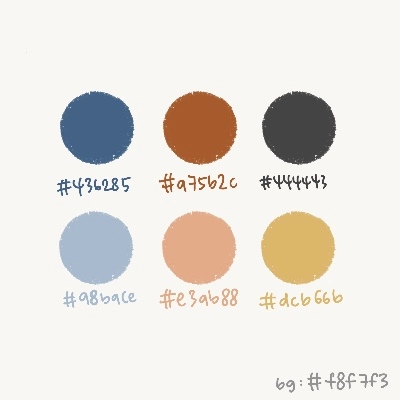 #436285 #a75b2c #444443
#a8bace #e3ab88 #dcb666
bg: #f8f7f3